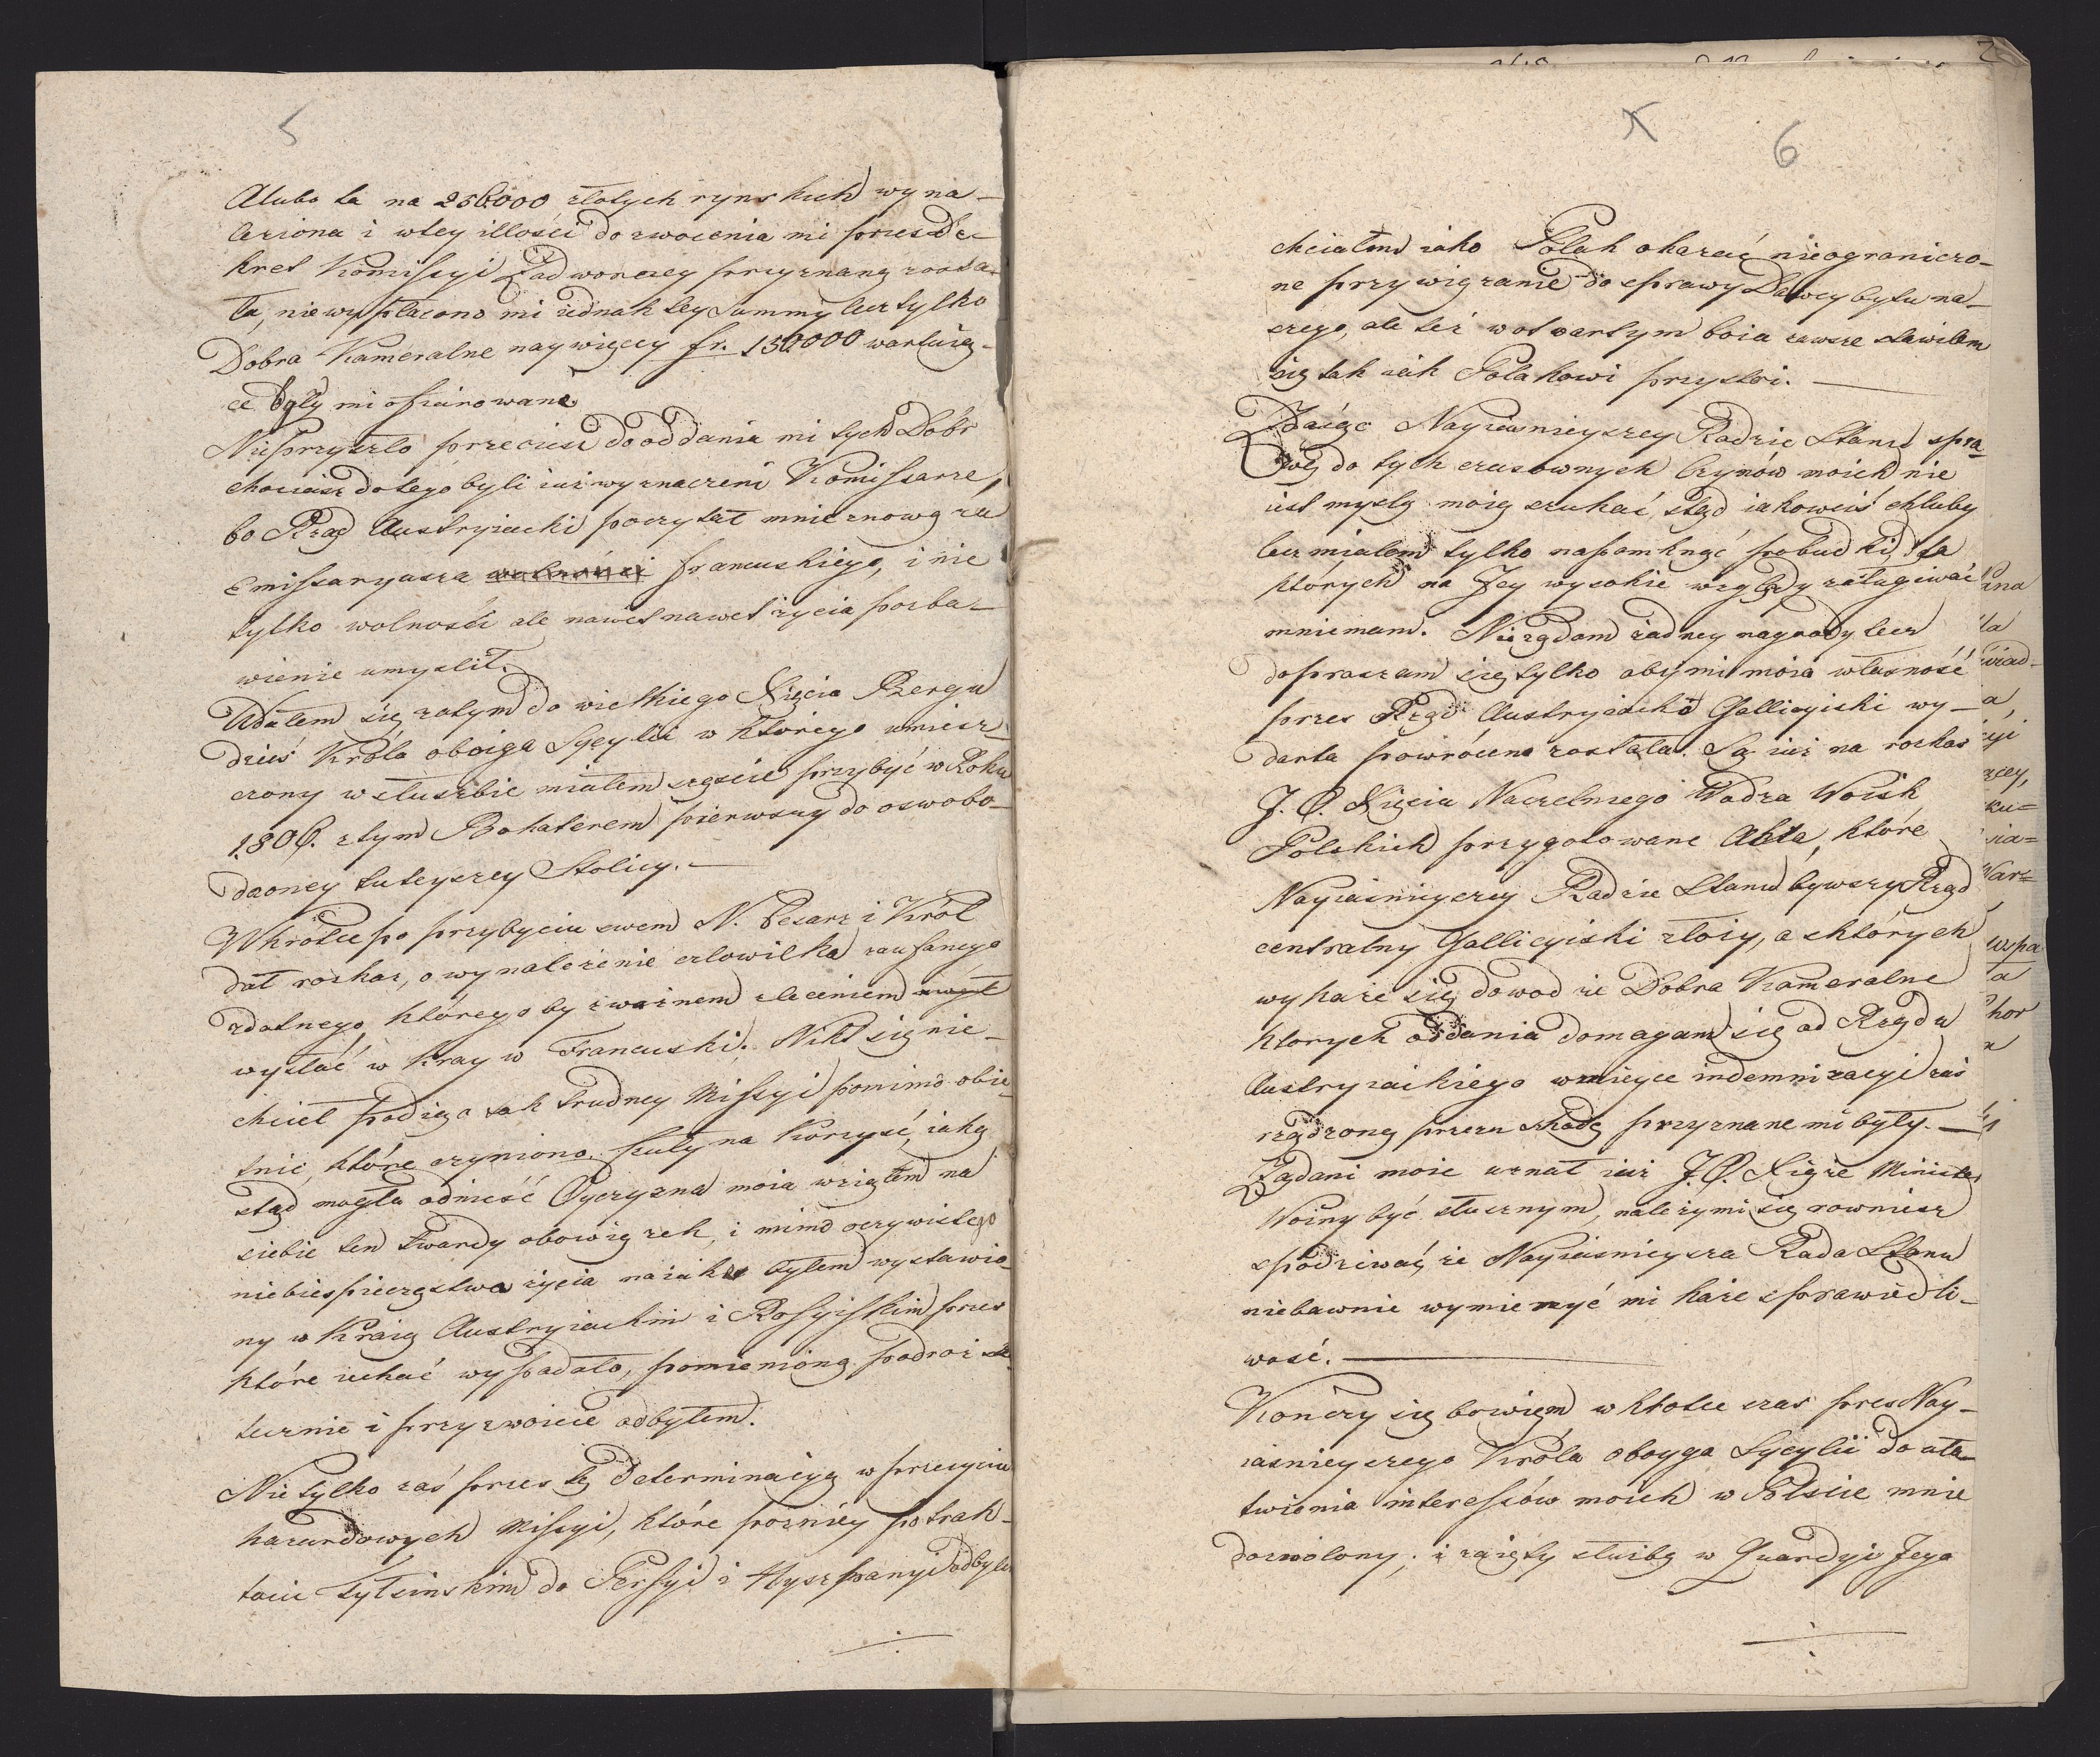 5
Alubo ta na 256000 złotych ryńskich wyna-
leziona i wtey illości dozwolenia mi przez De-
kret Komissyi Nadworney przyznaną zosta-
ła, nie wypłacono mi iednak tey Summy lecz tylko
Dobra Kameralne naywięcey fr. 150000 wartuią-
ce były mi ofiarowane.
Nieprzyszło przeciesz do oddania mi tych Dóbr
chociasz dotego byli iuż wyznaczeni Komissarze,
bo Rząd Austryiacki poczytał mnie znowu za
Emissaryusza francuskiego, i nie
tylko wolności ale nawet nawet życia pozba-
wienie umyslił.
Udałem się zatym do wielkiego Xięcia Bergu
dziś Króla oboiga Sycylii w ktorego umiesz-
czony w służbie miałem szczęście przybyć w Roku
1806. z tym Bohaterem pierwszy do oswobo-
dzoney tuteyszey Stolicy.
Wkrótce po przybyciu swem N. Cesarz i Król
dał rozkaz, o wynalezienie człowieka zaufanego
zdatnego, którego by z ważnem zleceniem mógł
wysłać w Kray w Francuski. Nikt się nie-
chciał podiąć tak trudney Missyi pomimo obie-
tnic, które czyniono. Tuły na korzyść, iaką
stąd mogła odnieść Oyczyzna moia wziąłem na
siebie ten twardy obowiązek, i mimo oczywistego
niebiespieczęstwa życia na iakie byłem wystawio-
ny w Kraiu Austryiackim i Rossyiskim przez
które iechać wypadało, pomienioną podroż sku-
tecznie i przyzwoicie odbyłem.
Nie tylko zaś przez tę determinacyą w przeyciu
hazardowych Missyi, które pozniéy po trak-
tacie Tylżinskim do Perssyi i Hyszpanyi odbyłem
6
chciałem iako Polak okazać nieograniczo-
ne przywiązanie do sprawy Dawcy bytu na-
szego, ale też w otwartym boiu zawsze stawilem
się tak iak Polakowi przystoi.
Zdaiąc Nayiasnieyszey Radzie Stanu spra-
wę do tych czasownych Czynów moich nie
iest myslą moią szukać stąd iakoweiś chluby
lecz miałem tylko napomknąć pobudki dla
których na Jey wysokie względy zasługiwać
mniemam. Nieżądam żadney nagrody lecz
dopraszam się tylko aby mi moia własność
przez Rząd Austryiacko Gallicyiski wy-
darta powrócona została. Są iuż na rozkaz
J. O. Xięcia Naczelnego Wodza Woisk
Polskich przygotowane Akta, które
Nayiasnieyszey Radzie Stanu bywszy Rząd
centralny Gallicyiski złoży, a z których
wykaże się dowod że Dobra Kameralne
ktorych oddania domagam się od Rządu
Austryiackiego w mieysce indemnizacyi za
rządzoną przezn szkodę przyznane mi były.
Żądani moie uznał iuż J. O. Xiąże Minister
Woiny być słusznym, należy mi się rowniesz
spodziwać, że Nayiasnieysza Rada Stanu
niebawnie wymierzyć mi każe sprawiedli-
wość.
Kończy się bowiem w krotce czas przez Nay-
iasnieyszego Króla oboyga Sycylii do uła-
twienia interessów moich w Polscie mnie
dozwolony, i zaięty służbą w Gwardyi Jego